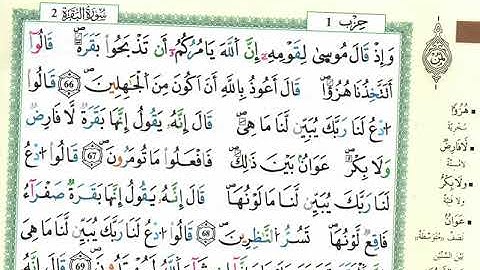 حِزْب 1
سُورَةُ البَقَرَةِ 2
وَإِذْ قَالَ مُوسِىٰ لِقَوْمِهِۦٓ إِنَّ ٱللَّهَ يَامُرُكُمُۥٓ أَن تَذْبَحُواْ بَقَرَةٗۖ قَالُوٓاْ
أَتَتَّخِذُنَا هُزُؤٗاۖ قَالَ أَعُوذُ بِاللَّهِ أَنَ اَكُونَ مِنَ ٱلْجَٰهِلِينَۖ 66 قَالُواْ
ٱدْعُ لَنَا رَبَّكَ يُبَيِّن لَّنَا مَا هِيَۖ قَالَ إِنَّهُۥ يَقُولُ إِنَّهَا بَقَرَةٞ لَّا فَارِضٞ
وَلَا بِكْرٌ عَوَانُۢ بَيْنَ ذَٰلِكَۖ فَافْعَلُواْ مَا تُومَرُونَۖ 67 قَالُواْ ٱدْعُ
لَنَا رَبَّكَ يُبَيِّن لَّنَا مَا لَوْنُهَاۖ قَالَ إِنَّهُۥ يَقُولُ إِنَّهَا بَقَرَةٞ صَفْرَآءُ
فَاقِعٞ لَّوْنُهَا تَسُرُّ ٱلنَّٰظِرِينَۖ 68 قَالُواْ ٱدْعُ لَنَا رَبَّكَ يُبَيِّن لَّنَا مَا هِيَ
ثمن
هُزُؤًا
سخرية
لَا فَارِضٌ
لا مسنة
وَلَا بِكْرٌ
ولا فتية
عَوَانٌ
نصف «متوسطة»
بين السنين